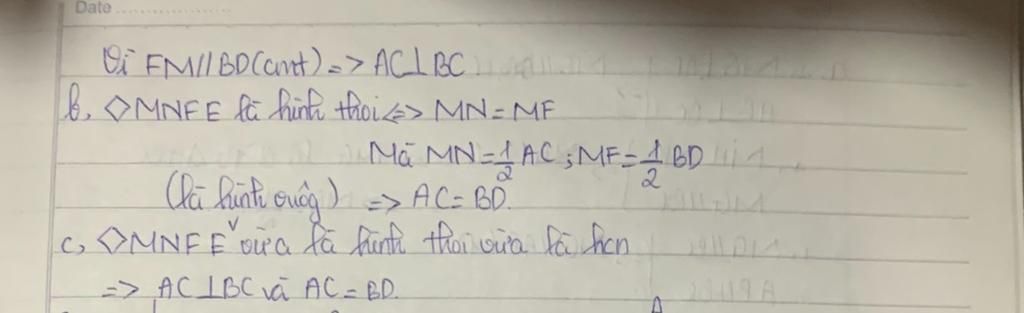 Date
Vì FM//BD(cmt) => AC⊥BC
b, ◇MNFE là hình thoi <=> MN=MF
Mà MN=1/2 AC; MF=1/2 BD
(là hình vuông) => AC=BD.
c, ◇MNFE vừa là hình thoi vừa là hcn
=> AC⊥BC và AC=BD.